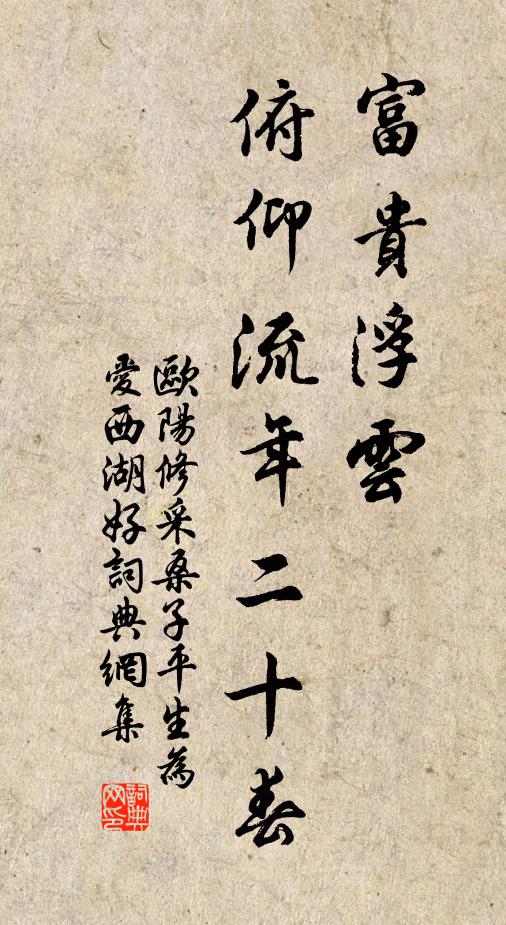 富貴浮雲
俯仰流年二十春
歐陽修采桑子平生為
愛西湖好詞典網集
詞典
网印